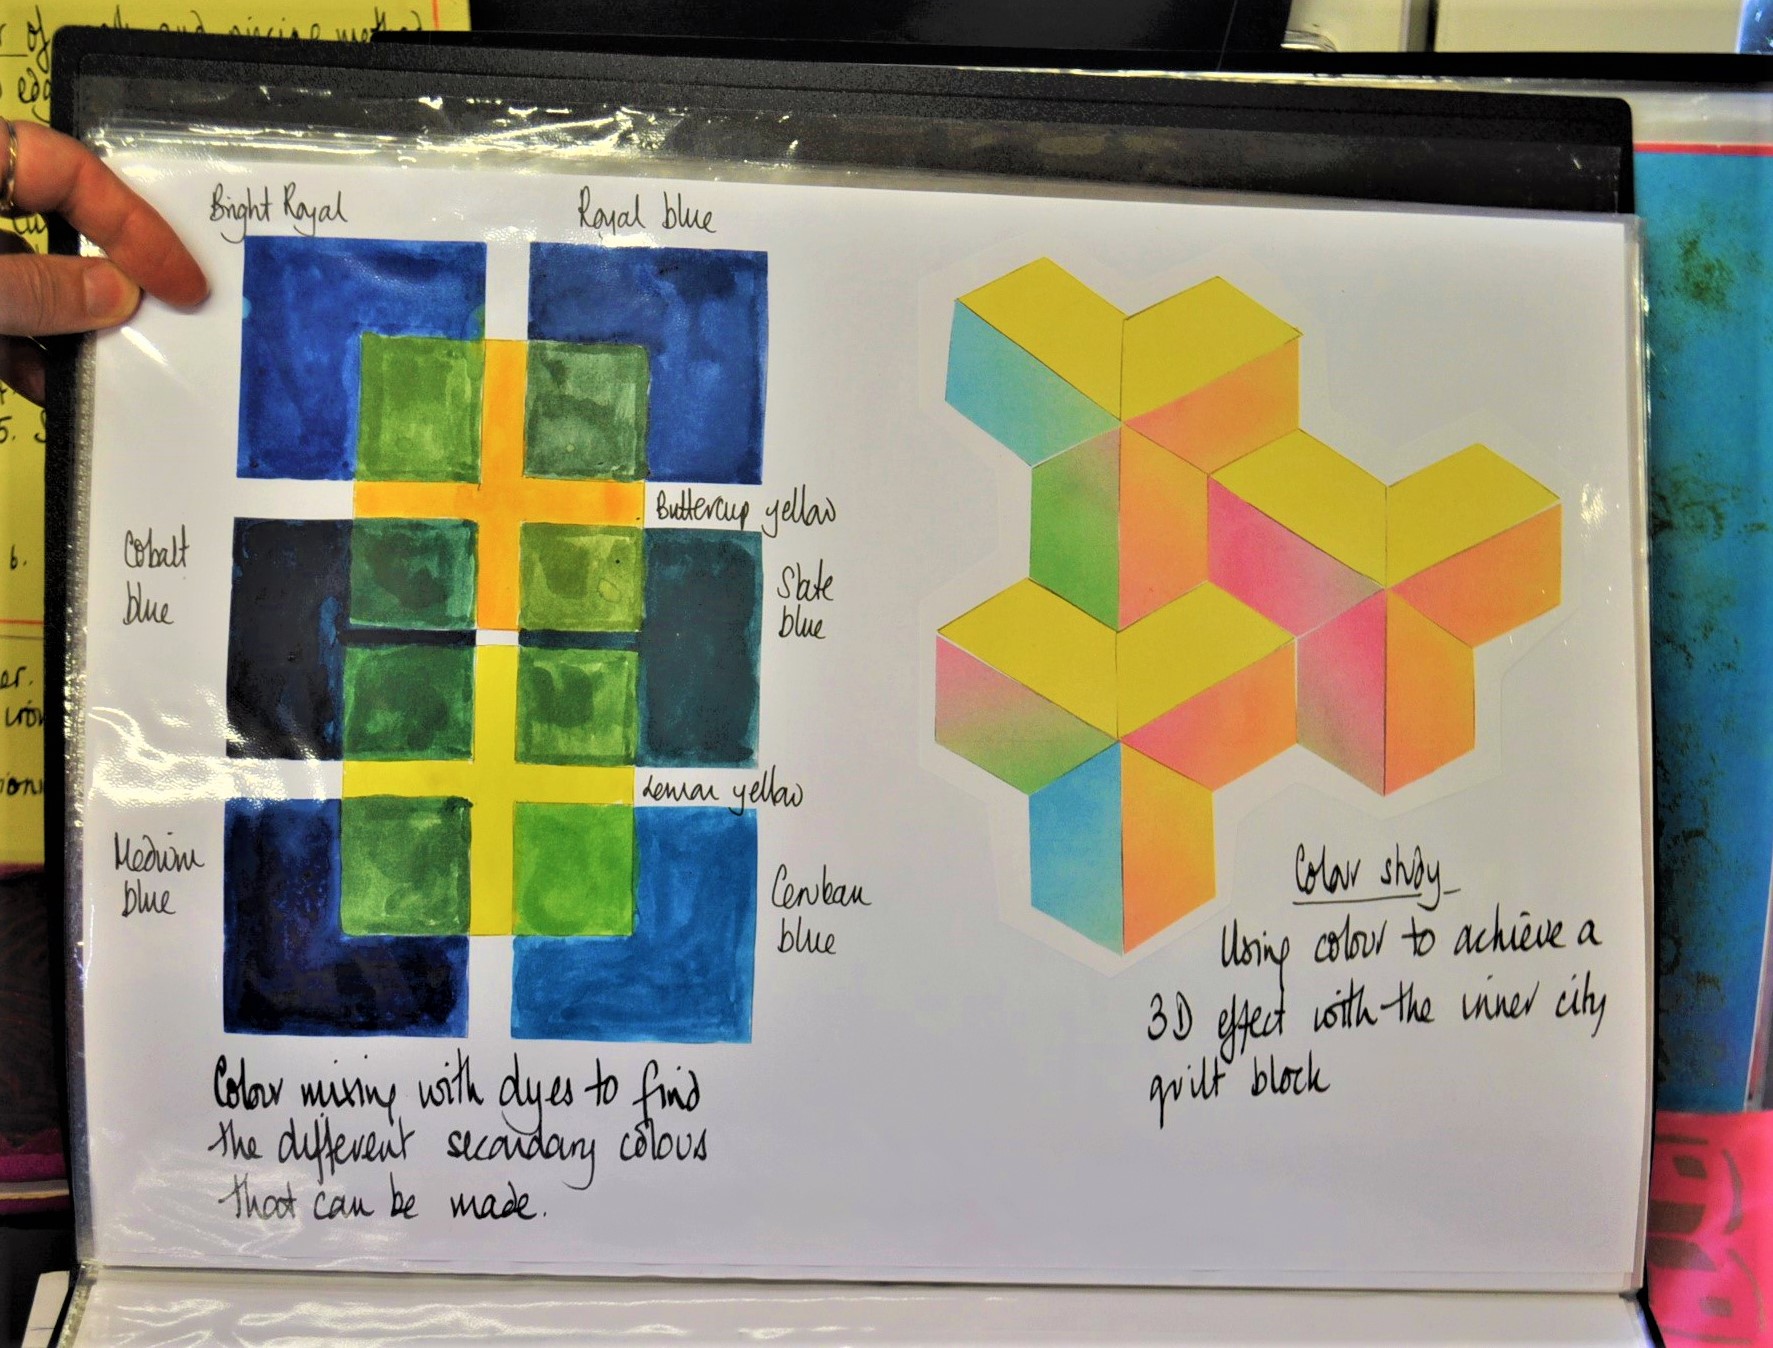 of
and piecing method
Bright Royal
Royal blue
Buttercup yellow
Cobalt
blue
Slate
blue
5.
6.
er.
Lemon yellow
Medium
blue
Cerulean
blue
Colour mixing with dyes to find
the different secondary colours
that can be made.
Colour study
Using colour to achieve a
3D effect with the inner city
quilt block